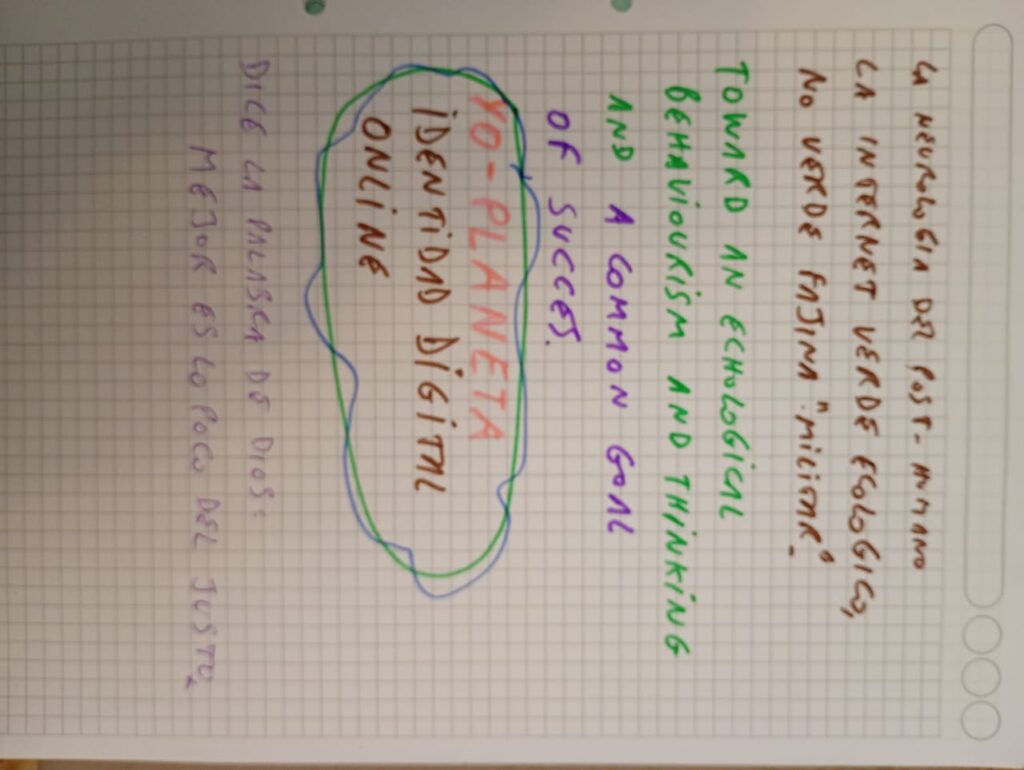 LA NEUROLOGIA DEL POST-HUMANO
LA INTERNET VERDE ECOLOGICO,
NO VERDE FAJINA "MILITAR".
TOWARD AN ECHOLOGICAL
BEHAVIOURISM AND THINKING
AND A COMMON GOAL
OF SUCCES.
YO-PLANETA
IDENTIDAD DIGITAL
ONLINE
DICE LA PALABRA DE DIOS:
MEJOR ES LO POCO DEL JUSTO,